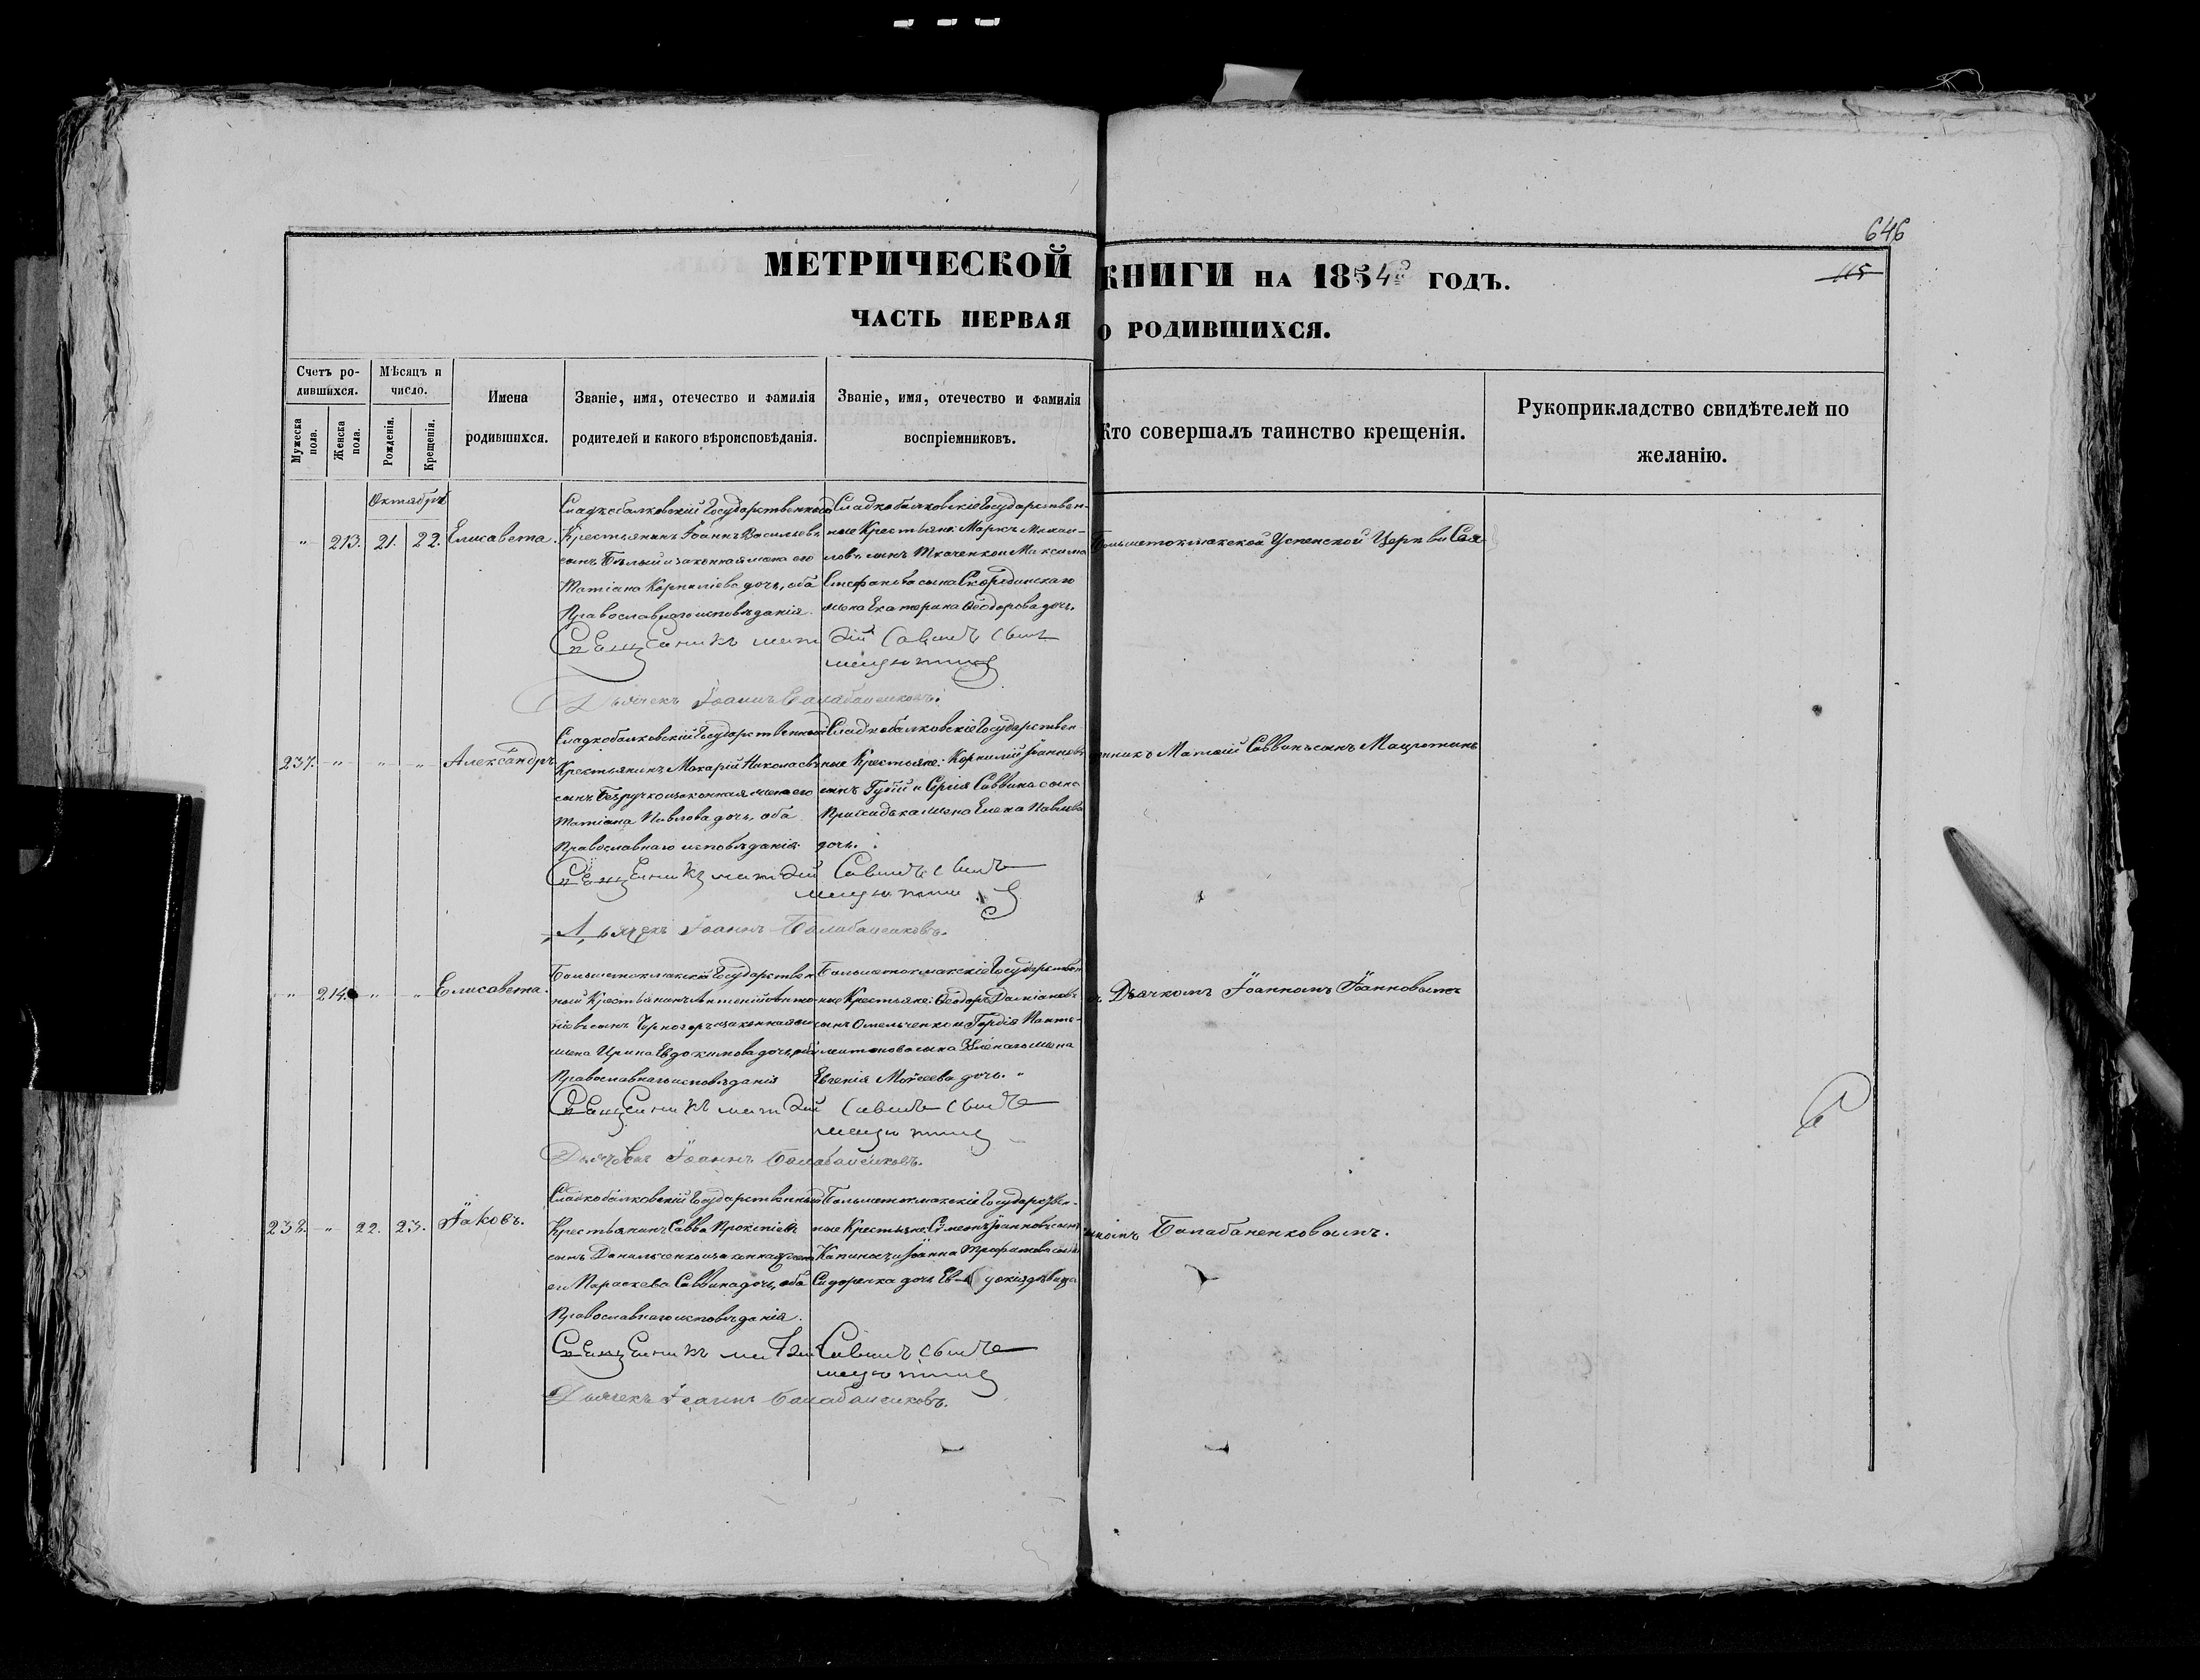 646
МЕТРИЧЕСКОЙ КНИГИ НА 1854й ГОДЪ.
115
ЧАСТЬ ПЕРВАЯ О РОДИВШИХСЯ.
Счетъ родившихся.
Мужеска пола.
Женска пола.
Мѣсяцъ и число.
Рожденія.
Крещенія.
Имена родившихся.
Званіе, имя, отечество и фамилія родителей и какого вѣроисповѣданія.
Званіе, имя, отечество и фамилія воспріемниковъ.
Кто совершалъ таинство крещенія.
Рукоприкладство свидѣтелей по желанію.
Октябрь
" 213. 21. 22. Елисавета.
Сладкобалковскій Государственный
Крестьянинъ Іоаннъ Васильевъ
сынъ Бѣлый и законная жена его
Татіана Корниліева дочь, оба
Православнаго исповѣданія.
Сладкобалковскіе Государствен-
ные Крестьяне: Маркъ
сынъ Ткаченко и Максима
Стефанова сына
жена Екатерина Ѳеодорова дочь.
Большетокмакской Успенской Церкви Свя
Священикъ Матѳій Савинъ сынъ
Дьячекъ Іоаннъ Балабаненковъ.
237. " " " Александръ
Сладкобалковскій Государственный
Крестьянинъ Макарій Николаевъ
сынъ Безручко и законная жена его
Татіана Павлова дочь, оба
Православнаго исповѣданія.
Сладкобалковскіе Государствен-
ные Крестьяне: Корнилій Іоанновъ
сынъ Губій и Сергія Саввина сына
жена Елена Павлова
дочь.
щенникъ Матѳій Саввинъ сынъ Мацютинъ
Священикъ Матѳій Савинъ сынъ
Дьячекъ Іоаннъ Балабаненковъ.
" 214. " " Елисавета.
Большетокмакскій Государствен
ный Крестьянинъ Антоній Анто
ніевъ сынъ Черногоръ и законная его
жена Ирина Евдокимова дочь, оба
Православнаго исповѣданія
Большетокмакскіе Государствен
ные Крестьяне: Ѳеодоръ Даміановъ
сынъ Омельченко и Гордія Панте-
сына жена
Евгенія Моѵсеева дочь. "
съ Дьячкомъ Іоанномъ Іоанновымъ
Священикъ Матѳій Савинъ сынъ
Дьячекъ Іоаннъ Балабаненковъ.
238. " 22. 23. Іаковъ.
Сладкобалковскій Государственный
Крестьянинъ Савва Прокопіевъ
сынъ Данильченко и законная жена
его Параскева Саввина дочь, оба
Православнаго исповѣданія.
Большетокмакскіе Государствен-
ные Крестьяне: Сѵмеонъ Іоанновъ сынъ
и Іоанна Трофимова сына
Сидоренка дочь Евдокія дѣвица
сыномъ Балабаненковымъ.
Священикъ Матѳій Савинъ сынъ
Дьячекъ Іоаннъ Балабаненковъ.